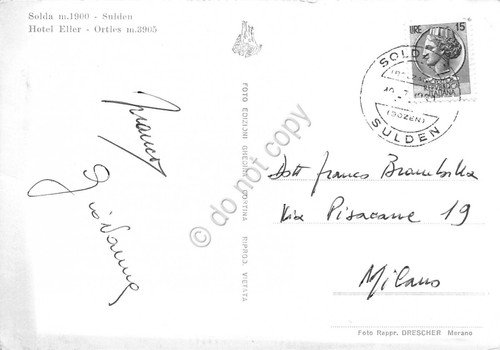 Solda m.1900 - Sulden
Hotel Eller - Ortles m.3905
LIRE 15
SOLDA
(BOLZANO)
(BOZEN)
SULDEN
Franco
Giovanna
FOTO EDIZIONI GHEDINA CORTINA RIPROD. VIETATA
do not copy
Dott Franco Brambilla
Via Pisacane 19
Milano
Foto Reppr. DRESCHER Merano